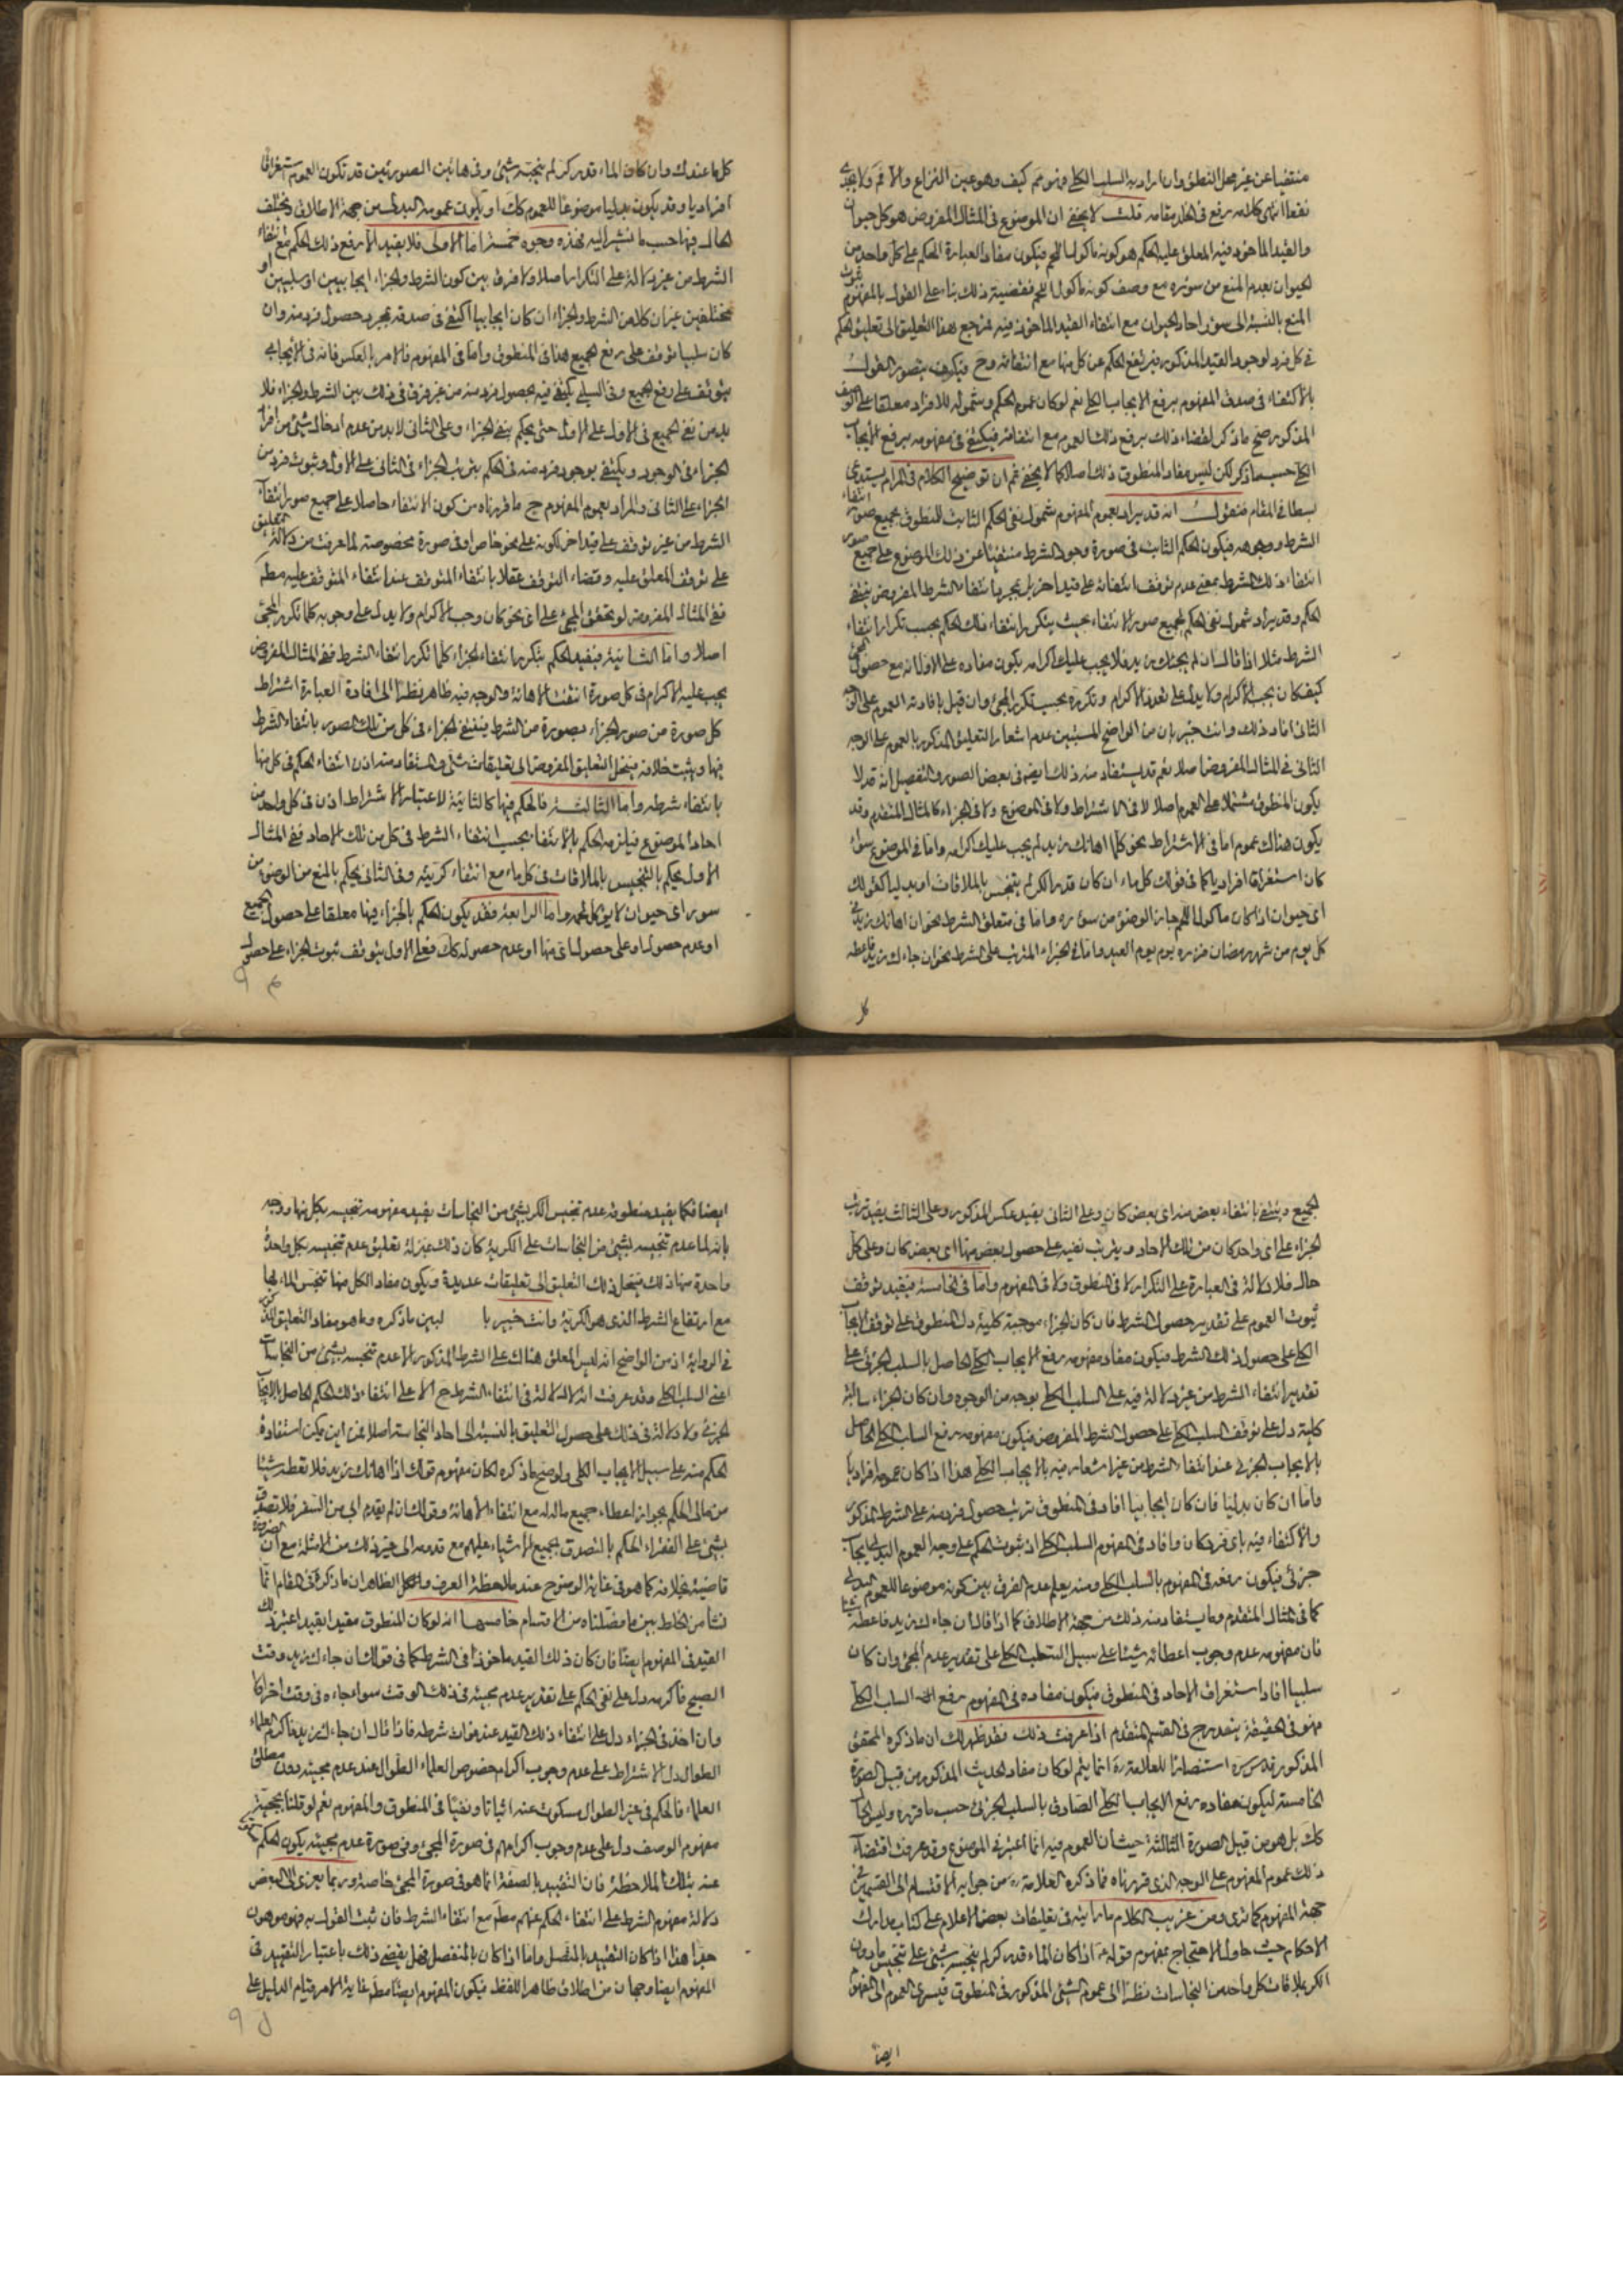 منتفيا عن غير محل النطق وان اراد به السلب الكلى فهو مم كيف وهو عين النزاع والا فم ولا يجديه
نفعا اذ اى كلامه رفع فى الخلد مقامه قلت لا يخفى ان الموضوع فى المثال المفروض هو كل حيوان
والقيد الماخوذ فيه المعلق عليه الحكم هو كونه ماكول اللحم فيكون مفاد العبارة الحكم على كل واحد من
الحيوان بعدم المنع من سؤره مع وصف كونه ماكول اللحم فقضية ذلك بناء على القول بالمفهوم ثبوت
المنع بالنسبة الى سؤر احاد الحيوان مع انتفاء القيد الماخوذ فيه لمرجع هذا التعليق الى تعليق الحكم
فى كل فرد لوجود القيد المذكور فيرتفع الحكم عن كل منها مع انتفائه وح فيكيف يتصور القول
بالاكتفاء فى صدق المفهوم برفع الايجاب الكلى نعم لو كان عموم الحكم وشموله للافراد معلقا على الوصف
المذكور صح ما ذكر لقضاء ذلك برفع ذلك العموم مع انتفائه فيكتفى فى مفهومه برفع الايجاب
الكلى حسبما ذكر لكن ليس مفاد المنطوق ذلك اصلا كما لا يخفى ثم ان توضيح الكلام فى المرام يستدعى
بسطا فى المقام فنقول انه قد يراد بعموم المفهوم شمول نفى الحكم الثابت للمنطوق بجميع صور انتفاء
الشرط ووجوهه فيكون الحكم الثابت فى صورة وجود الشرط منتفيا عن ذلك الموضوع على جميع صور
انتفاء ذلك الشرط بمعنى عدم توقف انتفائه على قيد اخر بل بمجرد انتفاء الشرط المفروض ينتفى
الحكم وقد يراد شمول نفى الحكم لجميع صور الانتفاء بحيث يتكرر انتفاء ذلك الحكم بحسب تكرار انتفاء
الشرط مثلا اذا قال ان لم يجئك زيد فلا يجب عليك اكرامه يكون مفاده على الاول انه مع حصول المجئ
كيف كان يجب الاكرام ولا يدل على تعدد الاكرام وتكرره بحسب تكرر المجئ وان قيل بافادته العموم على الوجه
الثانى افاد ذلك وانت خبير بان من الواضح المستبين عدم اشعار التعليق المذكور بالعموم على الوجه
الثانى فى المثال المفروض اصلا نعم قد يستفاد منه ذلك ايضا فى بعض الصور والتفصيل انه قد لا
يكون المنطوق مشتملا على العموم اصلا لا فى الاشتراط ولا فى الموضوع ولا فى الجزاء كالمثال المتقدم وقد
يكون هناك عموم اما فى الاشتراط نحو كلما اهانك زيد لم يجب عليك اكرامه واما فى الموضوع سواء
كان استغراقا افراديا كما فى قولك كل ماء ان كان قدر الكر لم يتنجس بالملاقات او بدليا كقولك
اى حيوان اذا كان ماكول اللحم جاز الوضوء من سؤره واما فى متعلق الشرط نحو ان اهانك زيد فى
كل يوم من شهر رمضان فزره يوم العيد واما فى الجزاء المترتب على الشرط نحو ان جاءك زيد فاعطه
كل
كل ما عندك وان كان الماء قدر كر لم ينجسه شئ وفى هاتين الصورتين قد تكون العموم استغراقا
افراديا وقد يكون بدليا موضوعا للعموم كك او يكون عمومه البدلى من جهة الاطلاق ويختلف
الحال فيها حسب ما نشير اليه فهذه وجوه خمسة اما الاولى فلا يفيد الا رفع ذلك الحكم مع انتفاء
الشرط من غير دلالة على التكرار اصلا ولا فرق بين كون الشرط والجزاء ايجابيين او سلبيين او
مختلفين غير ان كلا من الشرط والجزاء ان كان ايجابيا اكتفى فى صدقه بمجرد حصول فرد منه وان
كان سلبيا توقف على رفع الجميع هذا فى المنطوق واما فى المفهوم فالامر بالعكس فانه فى الايجابى
يتوقف على رفع الجميع وفى السلبى يكتفى فيه بحصول فرد منه من غير فرق فى ذلك بين الشرط والجزاء فلا
بد من نفى الجميع فى الاول على الاول حتى يحكم بنفى الجزاء وعلى الثانى لا بد من عدم ادخال شئ من افراد
الجزاء فى الوجود ويكتفى بوجود فرد منه فى الحكم بترتب الجزاء فى الثانى على الاول وثبوت فرد من
الجزاء على الثانى والمراد بعموم المفهوم ح ما قررناه من كون الانتفاء حاصلا على جميع صور انتفاء
الشرط من غير توقف على قيد اخر لكونه على نحو خاص او فى صورة مخصوصة لما عرفت من دلالة التعليق
على توقف المعلق عليه وقضاء التوقف عقلا بانتفاء المتوقف عند انتفاء المتوقف عليه مطم
ففى المثال المفروض لو تحقق المجئ على اى نحو كان وجب الاكرام ولا يدل على وجوبه كلما تكرر المجئ
اصلا واما الثانية فيفيد الحكم بتكرر انتفاء الجزاء كلما تكرر انتفاء الشرط ففى المثال المفروض
يجب عليه الاكرام فى كل صورة انتفت الاهانة والوجه فيه ظاهر نظرا الى افادة العبارة اشتراط
كل صورة من صور الجزاء بصورة من الشرط فينتفى الجزاء فى كل من تلك الصور بانتفاء الشرط
فيها ويثبت خلافه فينحل التعليق المفروض الى تعليقات شتى والمستفاد منه اذن انتفاء الحكم فى كل منها
بانتفاء شرطه واما الثالثة فالحكم فيها كالثانية لاعتبار الاشتراط اذن فى كل واحد من
احاد الموضوع فيلزمه الحكم بالانتفاء بحسب انتفاء الشرط فى كل من تلك الاحاد ففى المثال
الاول يحكم بالتنجيس بالملاقات فى كل ماء مع انتفاء كريته وفى الثانى يحكم بالمنع من الوضوء من
سور اى حيوان لا يوكل لحمه واما الرابعة فقد يكون الحكم بالجزاء فيها معلقا على حصول الجميع
او عدم حصوله او على حصول اى منها او عدم حصوله كك فعلى الاول يتوقف ثبوت الجزاء على حصول
الجميع وينتفى بانتفاء بعض منه اى بعض كان وعلى الثانى يفيد عكس المذكور وعلى الثالث يفيد ترتب
الجزاء على اى واحد كان من تلك الاحاد ويترتب نفيه على حصول بعض منها اى بعض كان وعلى كل
حال فلا دلالة فى العبارة على التكرار لا فى المنطوق ولا فى المفهوم واما فى الخامسة فيفيد توقف
ثبوت العموم على تقدير حصول الشرط فان كان الجزاء موجبة كلية دل المنطوق على توقف الايجاب
الكلى على حصول ذلك الشرط فيكون مفاد مفهومه رفع الايجاب الكلى الحاصل بالسلب الجزئى على
تقدير انتفاء الشرط من غير دلالة فيه على السلب الكلى بوجه من الوجوه وان كان الجزاء سالبة
كلية دل على توقف السلب الكلى على حصول الشرط المفروض فيكون مفهومه رفع السلب الكلى الحاصل
بالايجاب الجزئى عند انتفاء الشرط من غير اشعار فيه بالايجاب الكلى هذا اذا كان عمومه افراديا
واما ان كان بدليا فان كان ايجابيا افاد فى المنطوق ترتب حصول فرد منه على الشرط المذكور
والاكتفاء فيه باى فرد كان وافاد فى المفهوم السلب الكلى اذ ثبوت الحكم على وجه العموم البدلى ايجاب
جزئى فيكون رفعه فى المفهوم بالسلب الكلى ومنه يعلم عدم الفرق بين كونه موضوعا للعموم البدلى
كما فى المثال المتقدم وما يستفاد منه ذلك من جهة الاطلاق كما اذا قال ان جاءك زيد فاعطه شيئا
فان مفهومه عدم وجوب اعطائه شيئا على سبيل السلب الكلى على تقدير عدم المجئ وان كان
سلبيا افاد استغراق الاحاد فى المنطوق فيكون مفاده فى المفهوم رفع السلب الكلى
فهو فى الحقيقة يندرج فى القسم المتقدم اذا عرفت ذلك فقد ظهر لك ان ما ذكره المحقق
المذكور قدس سره استنصارا للعلامة ره انما يتم لو كان مفاد الحديث المذكور من قبيل الصورة
الخامسة ليكون مفاده رفع الايجاب الكلى الصادق بالسلب الجزئى حسب ما قرره وليس الحال
كك بل هو من قبيل الصورة الثالثة حيث ان العموم فيه انما اعتبر فى الموضوع وقد عرفت اقتضاء
ذلك عموم المفهوم على الوجه الذى قررناه فما ذكره العلامة ره من جوابه الانقسام الى القسمين فى
جهة المفهوم كما ترى ومن غريب الكلام ما رايته فى تعليقات بعض الاعلام على كتاب مدارك
الاحكام حيث حاول الاحتجاج بمفهوم قوله ع اذا كان الماء قدر كر لم ينجسه شئ على تنجس ما دون
الكر بملاقات كل واحد من النجاسات نظرا الى عموم الشئ المذكور فى المنطوق فيسرى العموم الى المفهوم
ايضا
ايضا فكما يفيد منطوقه عدم تنجيس الكر بشئ من النجاسات يفيد مفهومه تنجيسه بكل منها ووجه
بانه لما علق عدم تنجيسه بشئ من النجاسات على الكرية كان ذلك بمنزلة تعليق عدم تنجيسه بكل واحدة
واحدة منها فذلك فينحل ذلك التعليق الى تعليقات عديدة ويكون مفاد الكل منها تنجس الماء بها
مع ارتفاع الشرط الذى هو الكرية وانت خبير با لبين ما ذكره وما هو مفاد التعليق المذكور
فى الرواية اذ من الواضح انه ليس المعلق هناك على الشرط المذكور الا عدم تنجسه بشئ من النجاسات
اعنى السلب الكلى وقد عرفت انه لا دلالة فى انتفاء الشرط ح الا على انتفاء ذلك الحكم الحاصل بالايجاب
الجزئى ولا دلالة فى ذلك على حصول التعليق بالنسبة الى احاد النجاسة اصلا فمن اين يمكن استفادة
الحكم منه على سبيل الايجاب الكلى ولو صح ما ذكره لكان مفهوم قولك اذا اهانك زيد فلا تعطه شيئا
من مالى الحكم بجواز اعطاء جميع ماله له مع انتفاء الاهانة وقولك ان لم يقدم ابى من السفر فلا تصدق
بشئ على الفقراء الحكم بالتصدق بجميع الاشياء عليهم مع قدومه الى غير ذلك من الامثلة مع ان الضرورة
قاضية بخلافه كما هو فى غاية الوضوح عند ملاحظة العرف ولعل الظاهر ان ما ذكره فى المقام انما
نشا من الخلط بين ما فصلناه من الاقسام خامسها انه لو كان المنطوق مقيدا بقيد اعتبر ذلك
القيد فى المفهوم ايضا فان كان ذلك القيد ماخوذا فى الشرط كما فى قولك ان جاءك زيد وقت
الصبح فاكرمه دل على نفى الحكم على تقدير عدم مجيئه فى ذلك الوقت سواء جاءه فى وقت اخر ام لا
وان اخذ فى الجزاء دل على انتفاء ذلك القيد عند فوات شرطه فاذا قال ان جاءك زيد فاكرم العلماء
الطوال دل الاشتراط على عدم وجوب اكرام خصوص العلماء الطوال عند عدم مجيئه دون مطلق
العلماء فالحكم فى غير الطوال مسكوت عنه اثباتا ونفيا فى المنطوق والمفهوم نعم لو قلنا بحجية
مفهوم الوصف دل على عدم وجوب اكرامهم فى صورة المجئ وفى صورة عدم مجيئه يكون الحكم مسكوت
عنه بتلك الملاحظة فان التقييد بالصفة انما هو فى صورة المجئ خاصة وربما يعزى الى البعض
دلالة مفهوم الشرط على انتفاء الحكم عنهم مطم مع انتفاء الشرط فان ثبت القول به فهو موهون
جدا هذا اذا كان التقييد بالمتصل واما اذا كان بالمنفصل فهل يقضى ذلك باعتبار التقييد فى
المفهوم ايضا وجهان من اطلاق ظاهر اللفظ فيكون المفهوم ايضا مطم غاية الامر قيام الدليل على